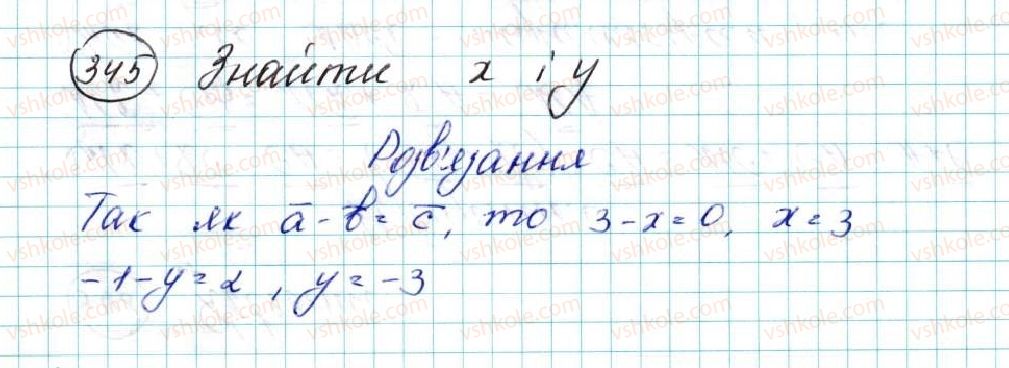 345 Знайти x і y
Розв'язання
Так як a̅ - b̅ = c̅, то 3 - x = 0, x = 3
-1 - y = 2, y = -3